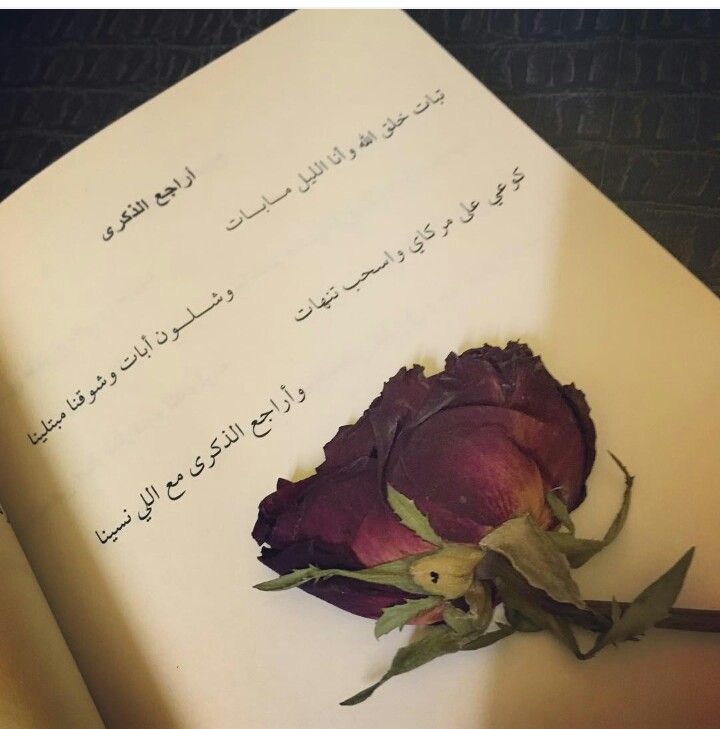 اراجع الذكرى
تبات خلق الله وأنا الليل مــابــات
وشلــــون أبات وشوقنا مبتلينا
كوعي على مركاي واسحب تنهات
وأراجع الذكرى مع اللي نسينا